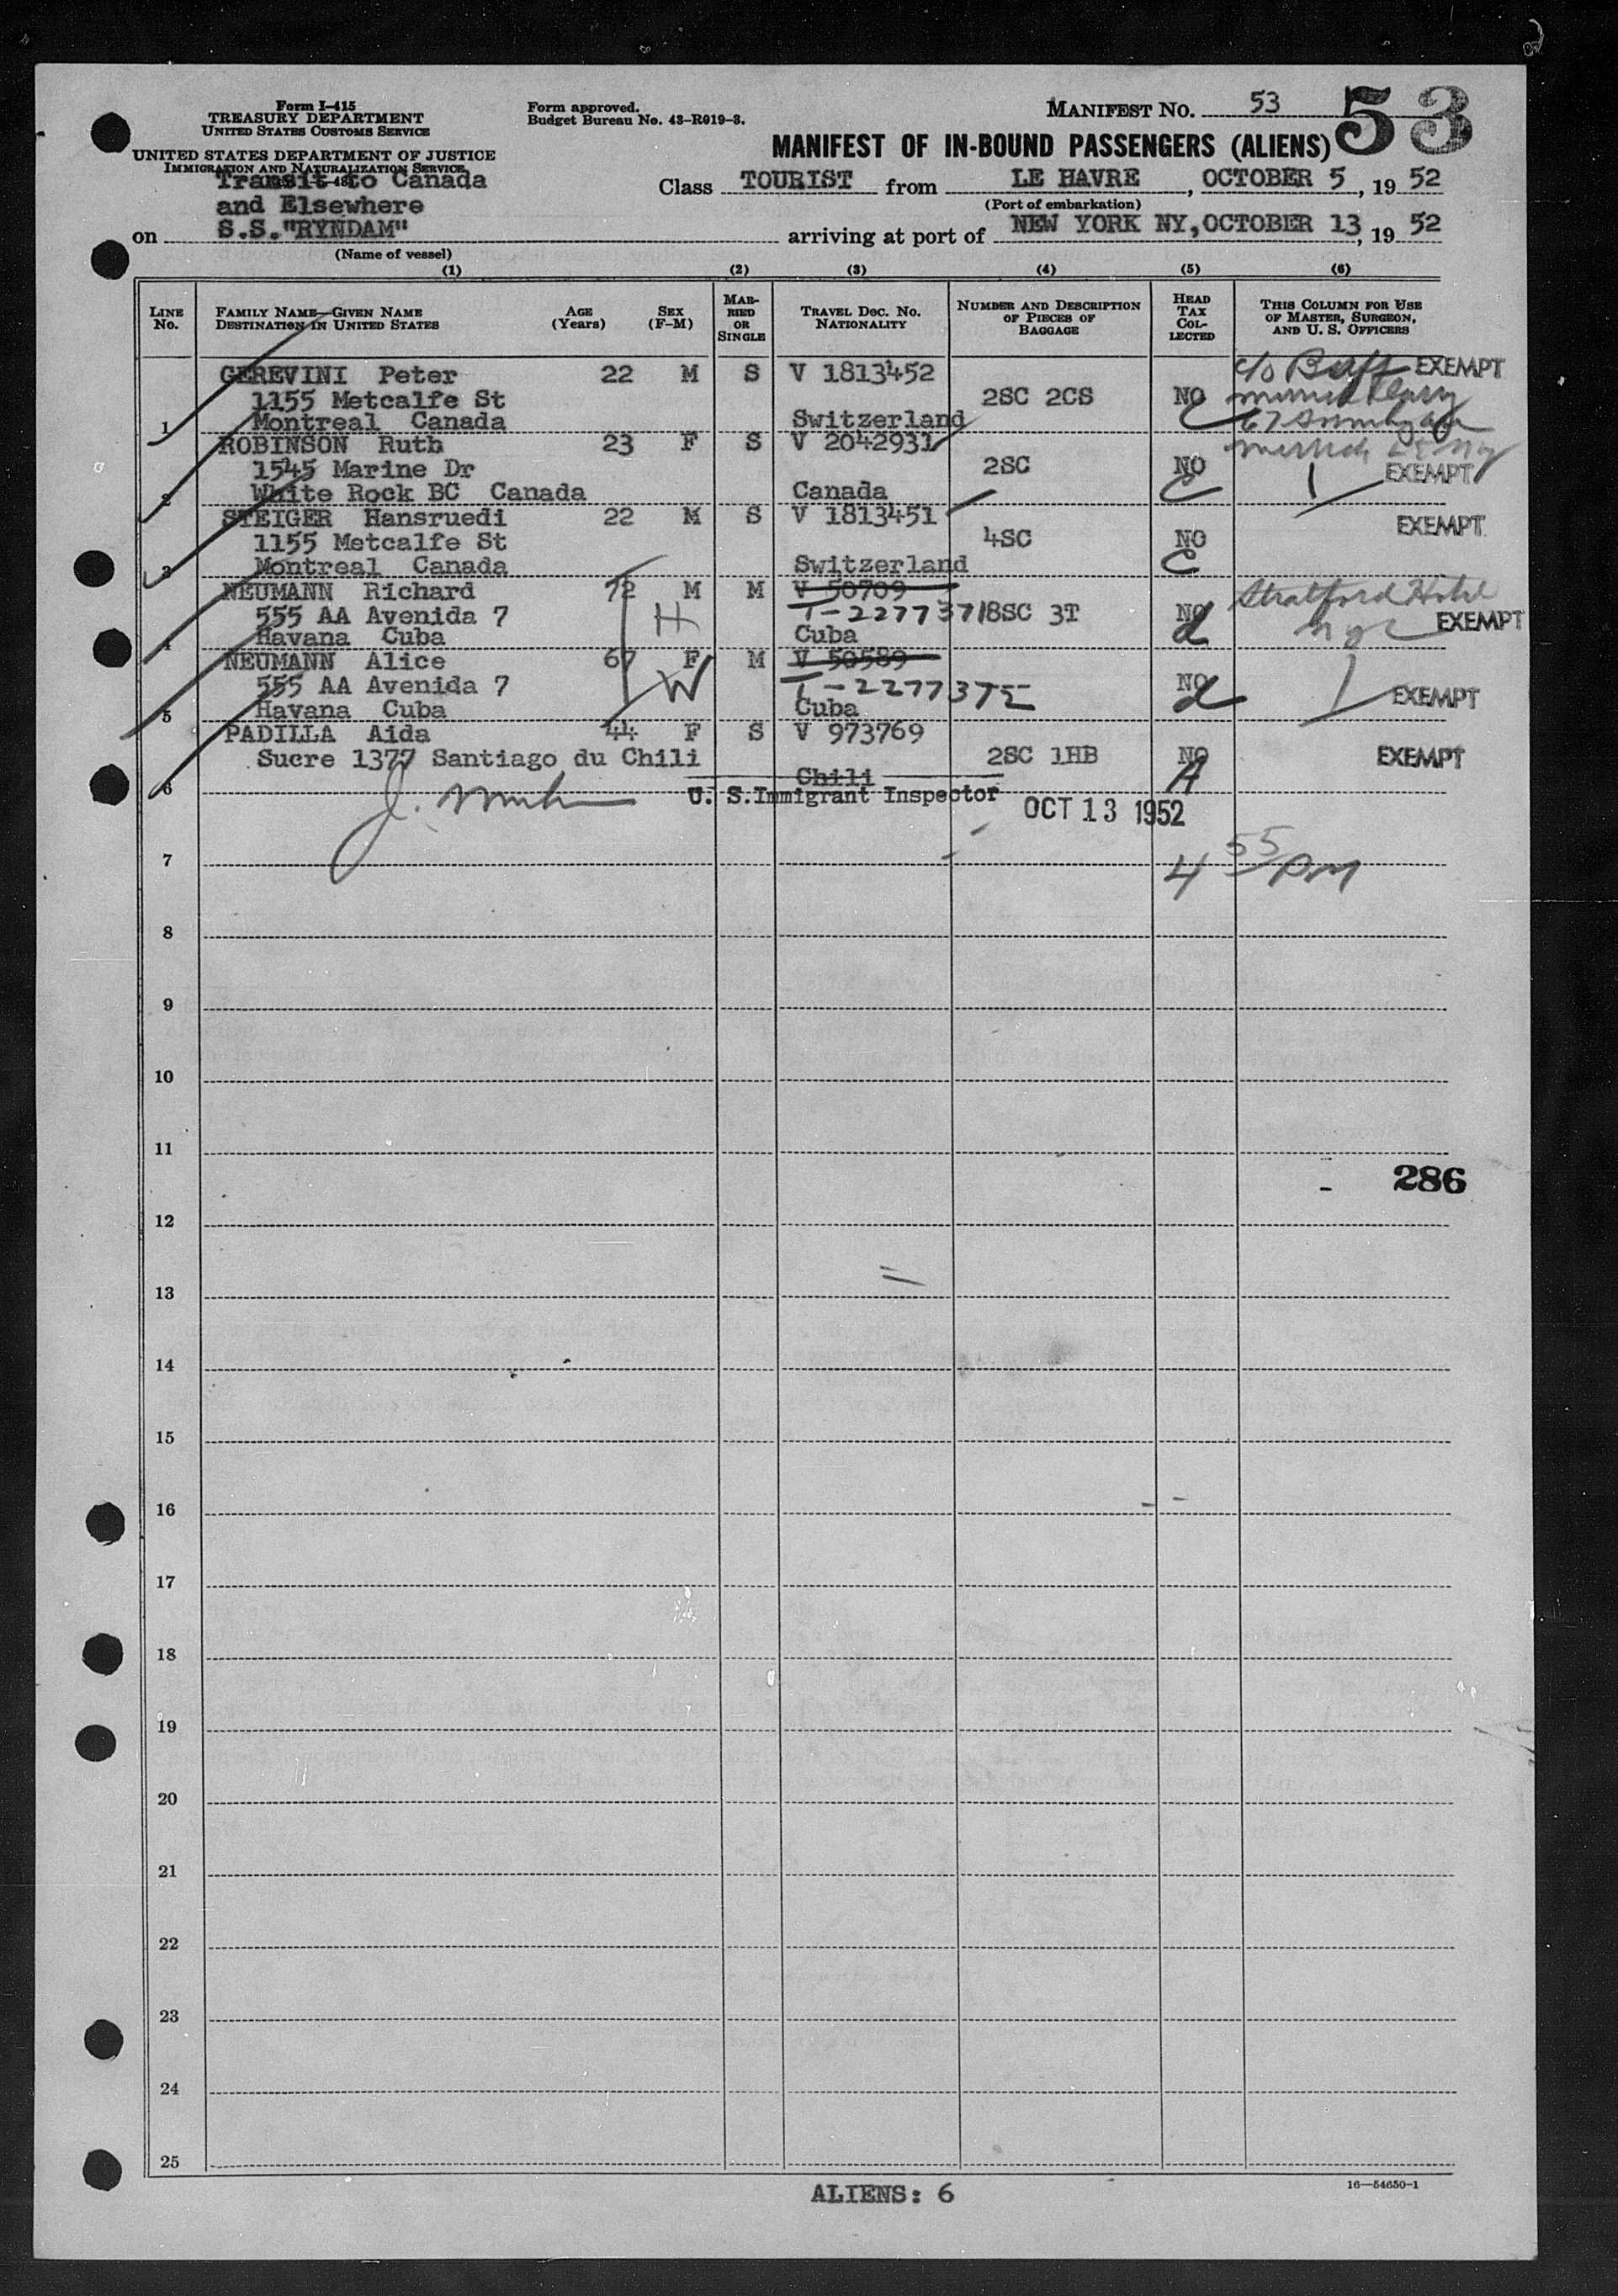 Form I-415
TREASURY DEPARTMENT
UNITED STATES CUSTOMS SERVICE
UNITED STATES DEPARTMENT OF JUSTICE
IMMIGRATION AND NATURALIZATION SERVICE
Transit to Canada
and Elsewhere
on S.S."RYNDAM"
(Name of vessel)
Form approved.
Budget Bureau No. 43-R019-3.
MANIFEST NO. 53
53
MANIFEST OF IN-BOUND PASSENGERS (ALIENS)
Class TOURIST from LE HAVRE, OCTOBER 5, 19 52
(Port of embarkation)
arriving at port of NEW YORK NY, OCTOBER 13, 19 52
(1) (2) (3) (4) (5) (6)
LINE No. FAMILY NAME—GIVEN NAME DESTINATION IN UNITED STATES AGE (Years) SEX (F-M) MARRIED OR SINGLE TRAVEL DOC. NO. NATIONALITY NUMBER AND DESCRIPTION OF PIECES OF BAGGAGE HEAD TAX COLLECTED THIS COLUMN FOR USE OF MASTER, SURGEON, AND U. S. OFFICERS
GEREVINI Peter 22 M S V 1813452 c/o EXEMPT
1155 Metcalfe St 2SC 2CS NO
1 Montreal Canada Switzerland C 67
ROBINSON Ruth 23 F S V 2042931
1545 Marine Dr 2SC NO EXEMPT
2 White Rock BC Canada Canada C
STEIGER Hansruedi 22 M S V 1813451 EXEMPT
1155 Metcalfe St 4SC NO
3 Montreal Canada Switzerland C
NEUMANN Richard 72 M M V 50709 Stratford Hotel
555 AA Avenida 7 H T-2277371 8SC 3T NO EXEMPT
4 Havana Cuba Cuba NYC
NEUMANN Alice 67 F M V 50589
555 AA Avenida 7 W T-2277372 NO EXEMPT
5 Havana Cuba Cuba
PADILLA Aida 44 F S V 973769
Sucre 1377 Santiago du Chili 2SC 1HB NO EXEMPT
6 Chili A
J. U. S. Immigrant Inspector OCT 13 1952
7 4 55 PM
8
9
10
11
286
12
13
14
15
16
17
18
19
20
21
22
23
24
25
ALIENS: 6
16—54650-1